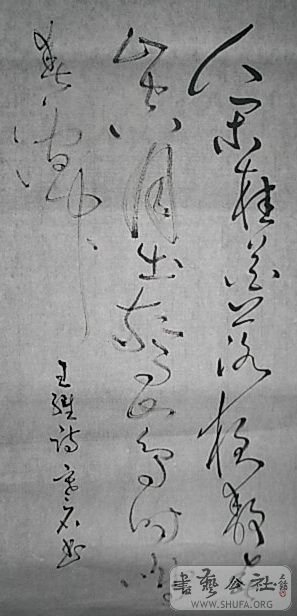 人闲桂花落夜静春
山空月出惊山鸟时鸣
春涧中
王维诗书
書藝公社
WWW.SHUFA.ORG